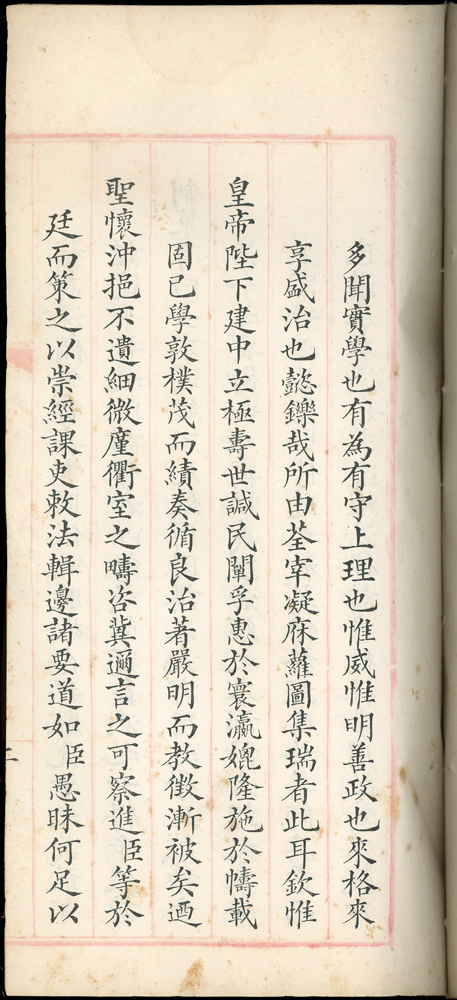 多聞實學也有為有守上理也惟威惟明善政也來格來
享盛治也懿鑠哉所由荃宰凝庥蘿圖集瑞者此耳欽惟
皇帝陛下建中立極壽世諴民闡孚惠於寰瀛媲隆施於幬載
固已學敦樸茂而績奏循良治著嚴明而教徵漸被矣迺
聖懷沖挹不遺細微廑衢室之疇咨冀邇言之可察進臣等於
廷而策之以崇經課吏敕法輯邊諸要道如臣愚昧何足以